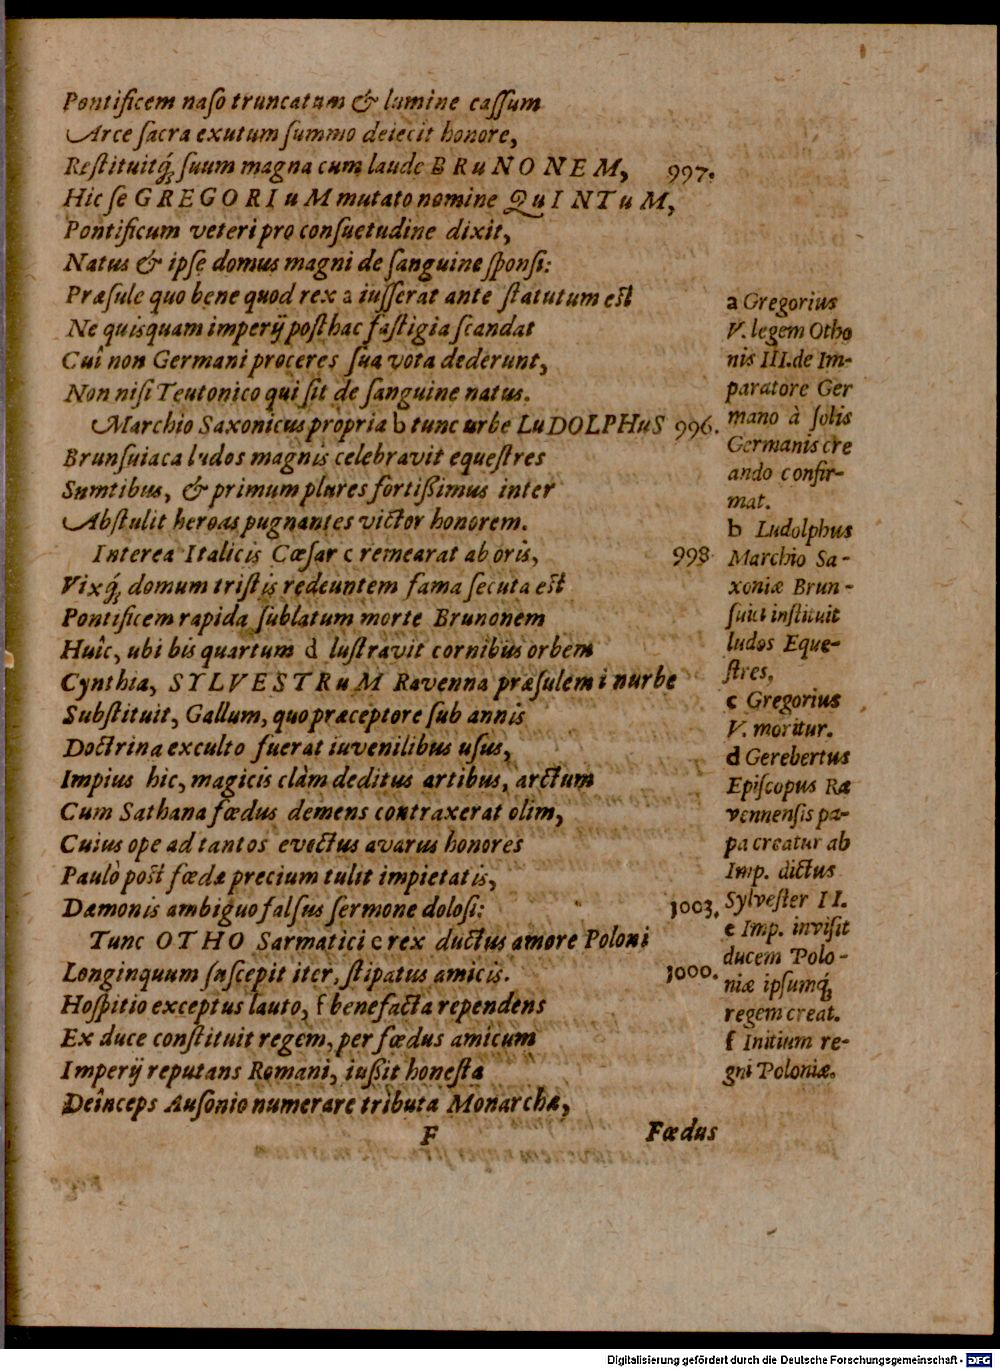 Pontificem naſo truncatum & lumine caſſum
Arce ſacra exutum ſummo deiecit honore,
Reſtituitq́; ſuum magna cum laude BRuNONEM, 997.
Hic ſe GREGORIuM mutato nomine QuINTuM,
Pontificum veteri pro conſuetudine dixit,
Natus & ipſe domus magni de ſanguine ſponſi:
Præſule quo bene quod rex a iuſſerat ante ſtatutum eſt
Ne quisquam imperij poſthac faſtigia ſcandat
Cuî non Germani proceres ſua vota dederunt,
Non niſi Teutonico qui ſit de ſanguine natus.
Marchio Saxonicus propria b tunc urbe LuDOLPHuS 996.
Brunſuiaca ludos magnis celebravit equeſtres
Sumtibus, & primum plures fortißimus inter
Abſtulit heroas pugnantes victor honorem.
Interea Italicis Cæſar c remearat ab oris, 998
Vixq́; domum triſtis redeuntem fama ſecuta eſt
Pontificem rapida ſublatum morte Brunonem
Huîc, ubi bis quartum d luſtravit cornibus orbem
Cynthia, SYLVESTRuM Ravenna præſulem in urbe
Subſtituit, Gallum, quo præceptore ſub annis
Doctrina exculto fuerat iuvenilibus uſus,
Impius hic, magicis clàm deditus artibus, arctum
Cum Sathana fœdus demens contraxerat olim,
Cuius ope ad tantos evectus avarus honores
Paulò poſt fœdæ precium tulit impietatis,
Dæmonis ambiguo falſus ſermone doloſi: 1003.
Tunc OTHO Sarmatici e rex ductus amore Poloni
Longinquum ſuſcepit iter, ſtipatus amicis. 1000.
Hoſpitio exceptus lauto, f benefacta rependens
Ex duce conſtituit regem, per fœdus amicum
Imperij reputans Romani, iußit honeſta
Deînceps Auſonio numerare tributa Monarchæ,
F Fœdus
a Gregorius
V. legem Otho
nis III. de Im-
paratore Ger
mano à ſolis
Germanis cre
ando confir-
mat.
b Ludolphus
Marchio Sa-
xoniæ Brun-
ſuici inſtituit
ludos Eque-
ſtres,
c Gregorius
V. moritur.
d Gerebertus
Epiſcopus Ra
vennenſis pa-
pa creatur ab
Imp. dictus
Sylveſter II.
e Imp. inviſit
ducem Polo-
niæ ipſumq́;
regem creat.
f Initium re-
gni Poloniæ.
Digitalisierung gefördert durch die Deutsche Forschungsgemeinschaft - DFG